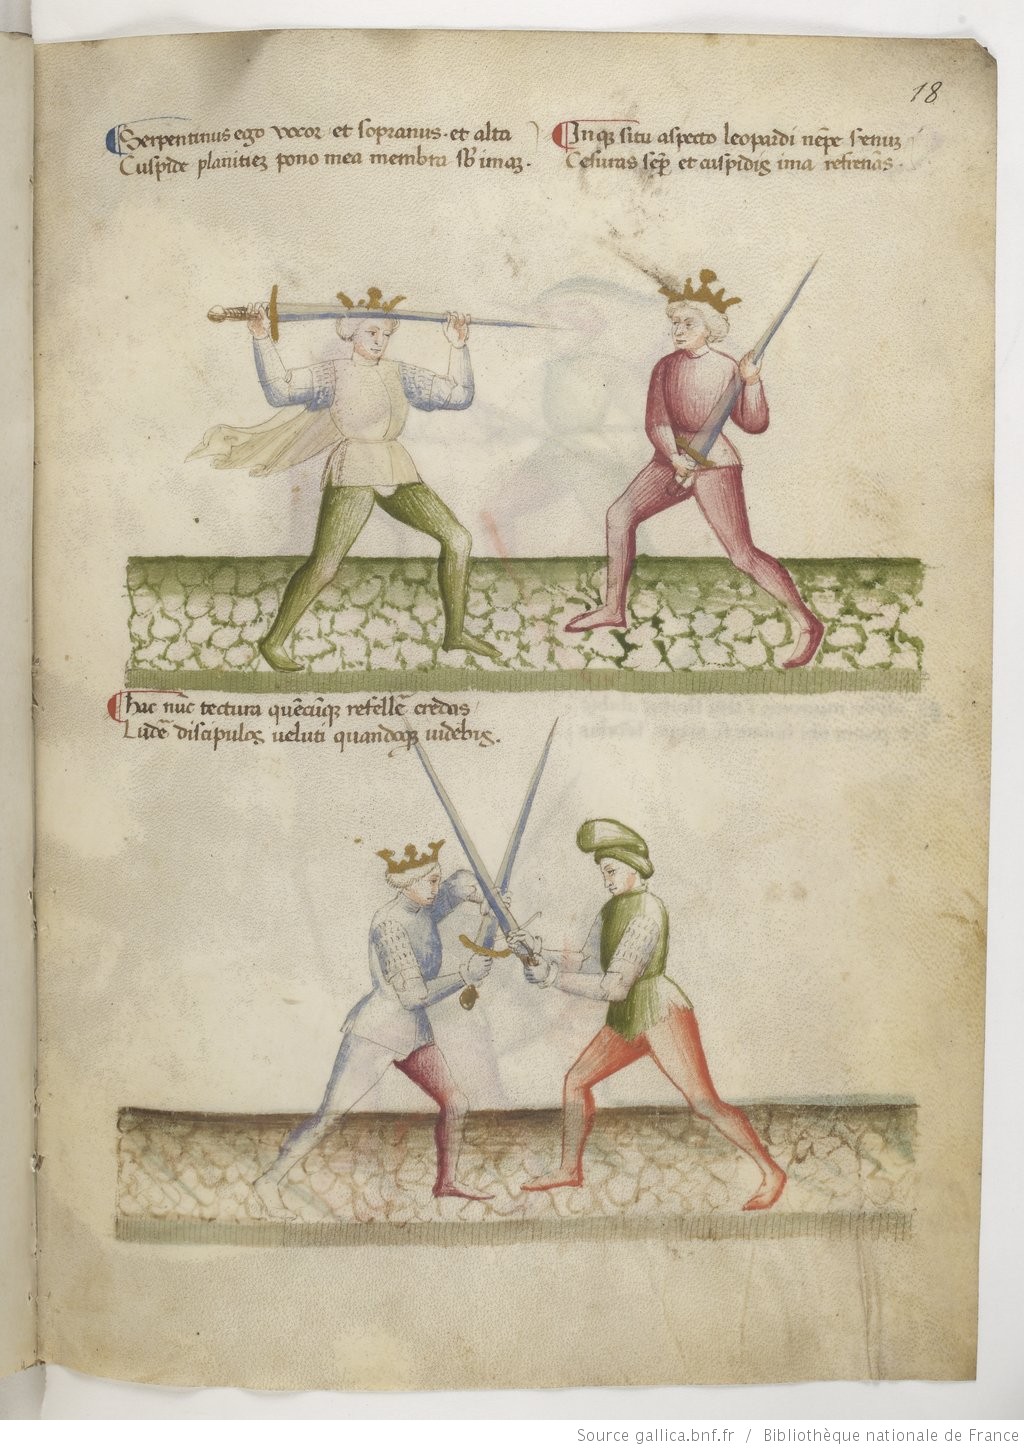 18
Serpentinus ego vocor et sopranus. et alta
Cuspide planitiez pono mea membra sb imaz.
Inqz situ aspecto leopardi nēpe serenuz
Cesuras sēp et cuspidis ima refrenās.
hac nūc tectura quēcūqz refellē credas
Ludē discipulos veluti quandoqz videbis.
Source gallica.bnf.fr / Bibliothèque nationale de France